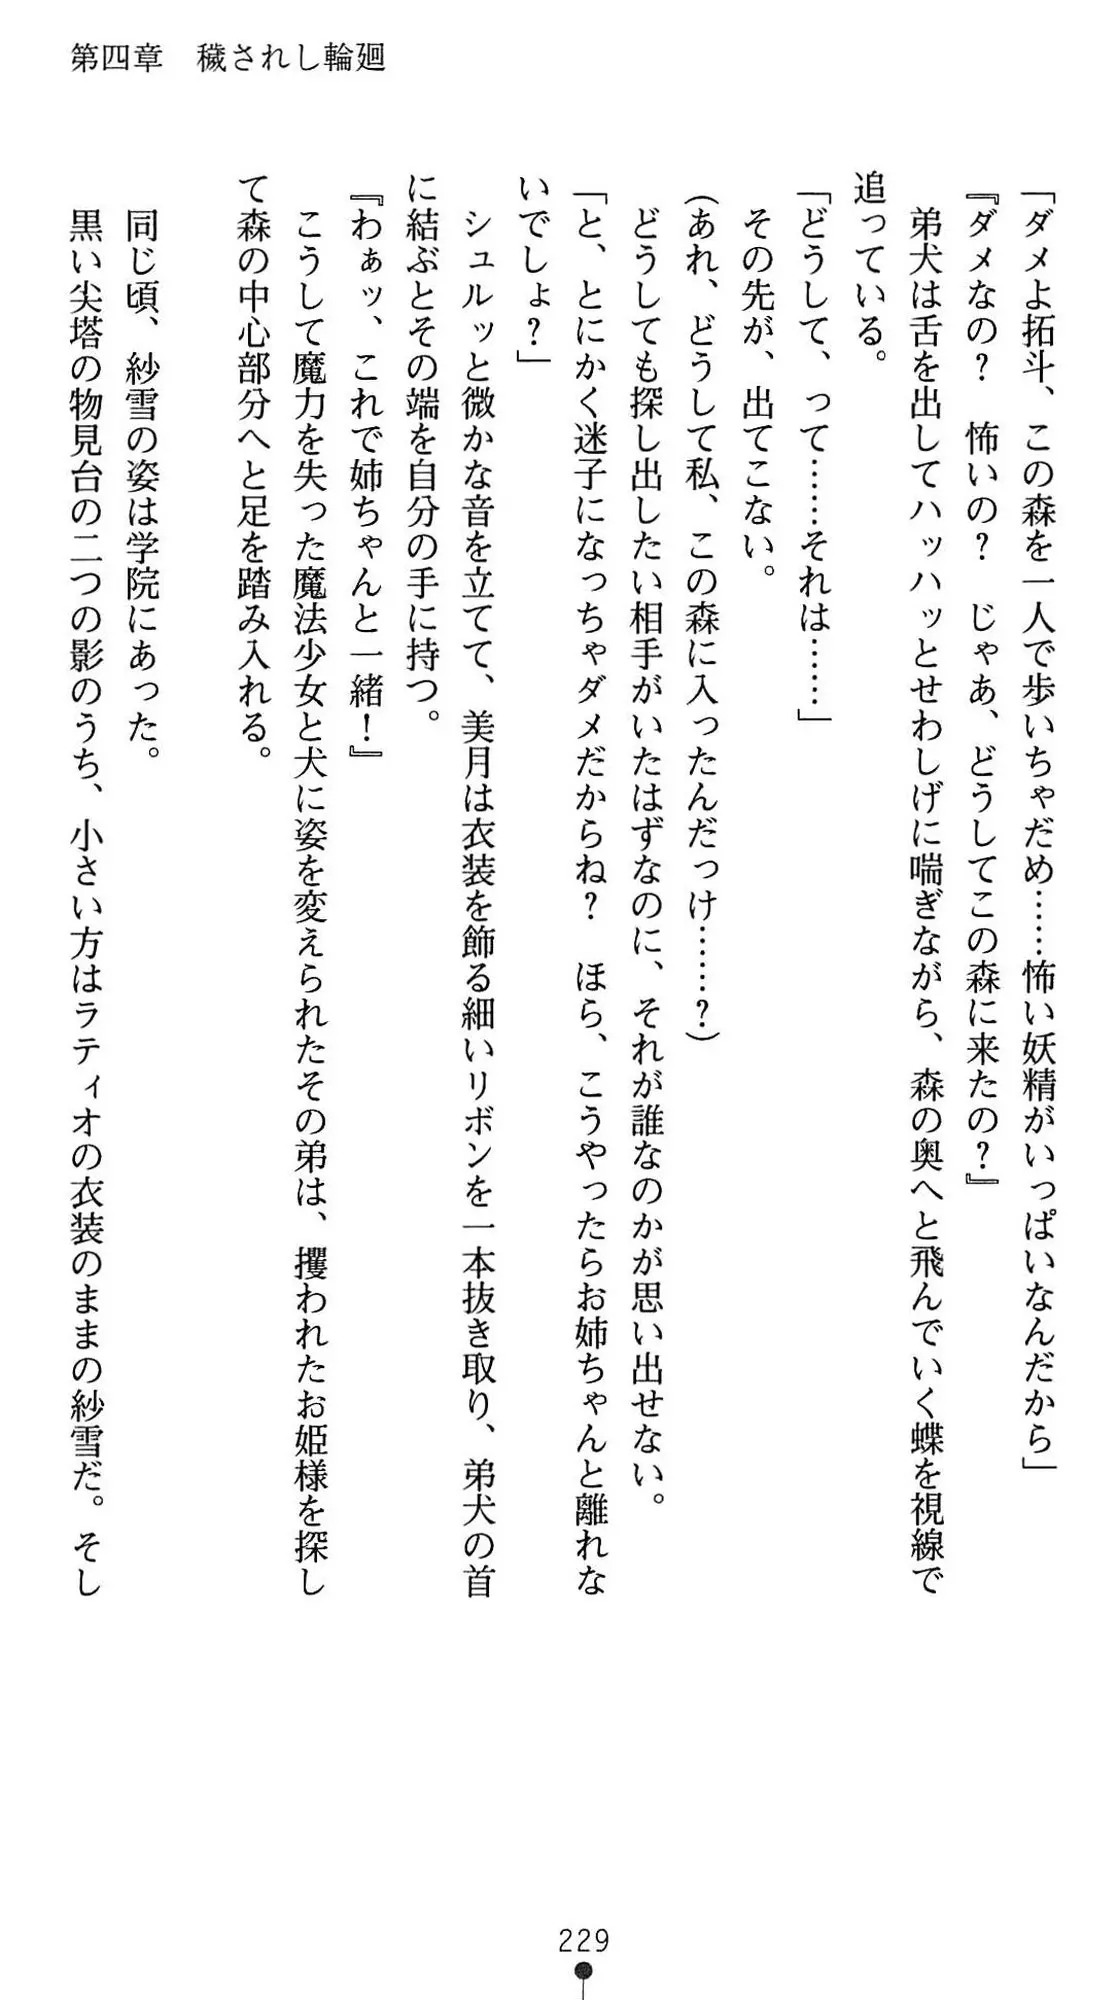 第四章　穢されし輪廻
「ダメよ拓斗、この森を一人で歩いちゃだめ……怖い妖精がいっぱいなんだから」
『ダメなの？　怖いの？　じゃあ、どうしてこの森に来たの？』
　弟犬は舌を出してハッハッとせわしげに喘ぎながら、森の奥へと飛んでいく蝶を視線で
追っている。
「どうして、って……それは……」
　その先が、出てこない。
（あれ、どうして私、この森に入ったんだっけ……？）
　どうしても探し出したい相手がいたはずなのに、それが誰なのかが思い出せない。
「と、とにかく迷子になっちゃダメだからね？　ほら、こうやったらお姉ちゃんと離れな
いでしょ？」
　シュルッと微かな音を立てて、美月は衣装を飾る細いリボンを一本抜き取り、弟犬の首
に結ぶとその端を自分の手に持つ。
『わぁッ、これで姉ちゃんと一緒！』
　こうして魔力を失った魔法少女と犬に姿を変えられたその弟は、攫われたお姫様を探し
て森の中心部分へと足を踏み入れる。
　同じ頃、紗雪の姿は学院にあった。
　黒い尖塔の物見台の二つの影のうち、小さい方はラティオの衣装のままの紗雪だ。そし
229